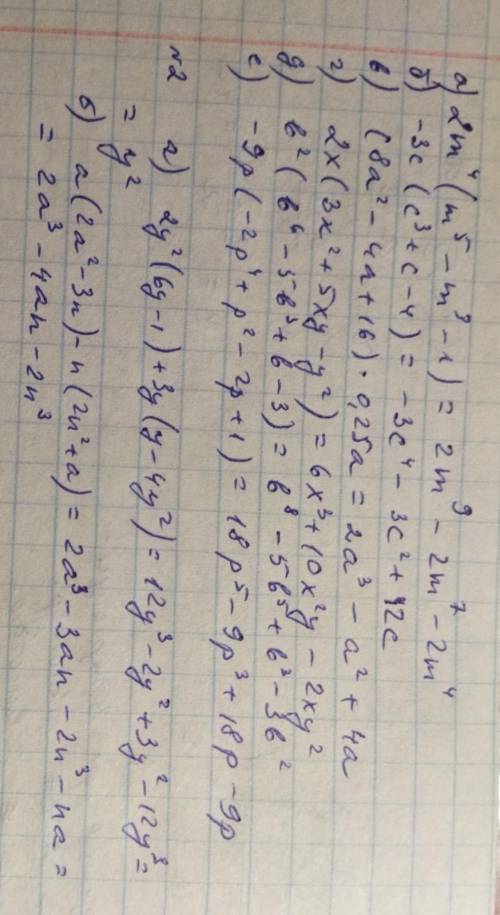 а) 2m⁴(m⁵ - m³ - 1) = 2m⁹ - 2m⁷ - 2m⁴
б) -3c(c³ + c - 4) = -3c⁴ - 3c² + 12c
в) (8a² - 4a + 16) · 0,25a = 2a³ - a² + 4a
г) 2x(3x² + 5xy - y²) = 6x³ + 10x²y - 2xy²
g) b²(b⁶ - 5b³ + b - 3) = b⁸ - 5b⁵ + b³ - 3b²
е) -9p(-2p⁴ + p² - 2p + 1) = 18p⁵ - 9p³ + 18p - 9p
№2 а) 2y²(6y - 1) + 3y(y - 4y²) = 12y³ - 2y² + 3y² - 12y³ =
= y²
б) a(2a² - 3n) - n(2n² + a) = 2a³ - 3an - 2n³ - na =
= 2a³ - 4an - 2n³